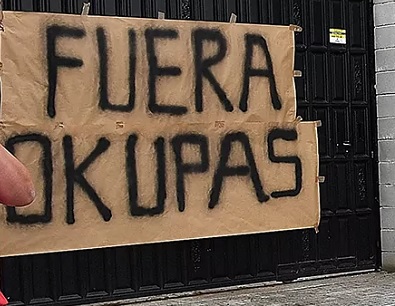 FUERA
OKUPAS